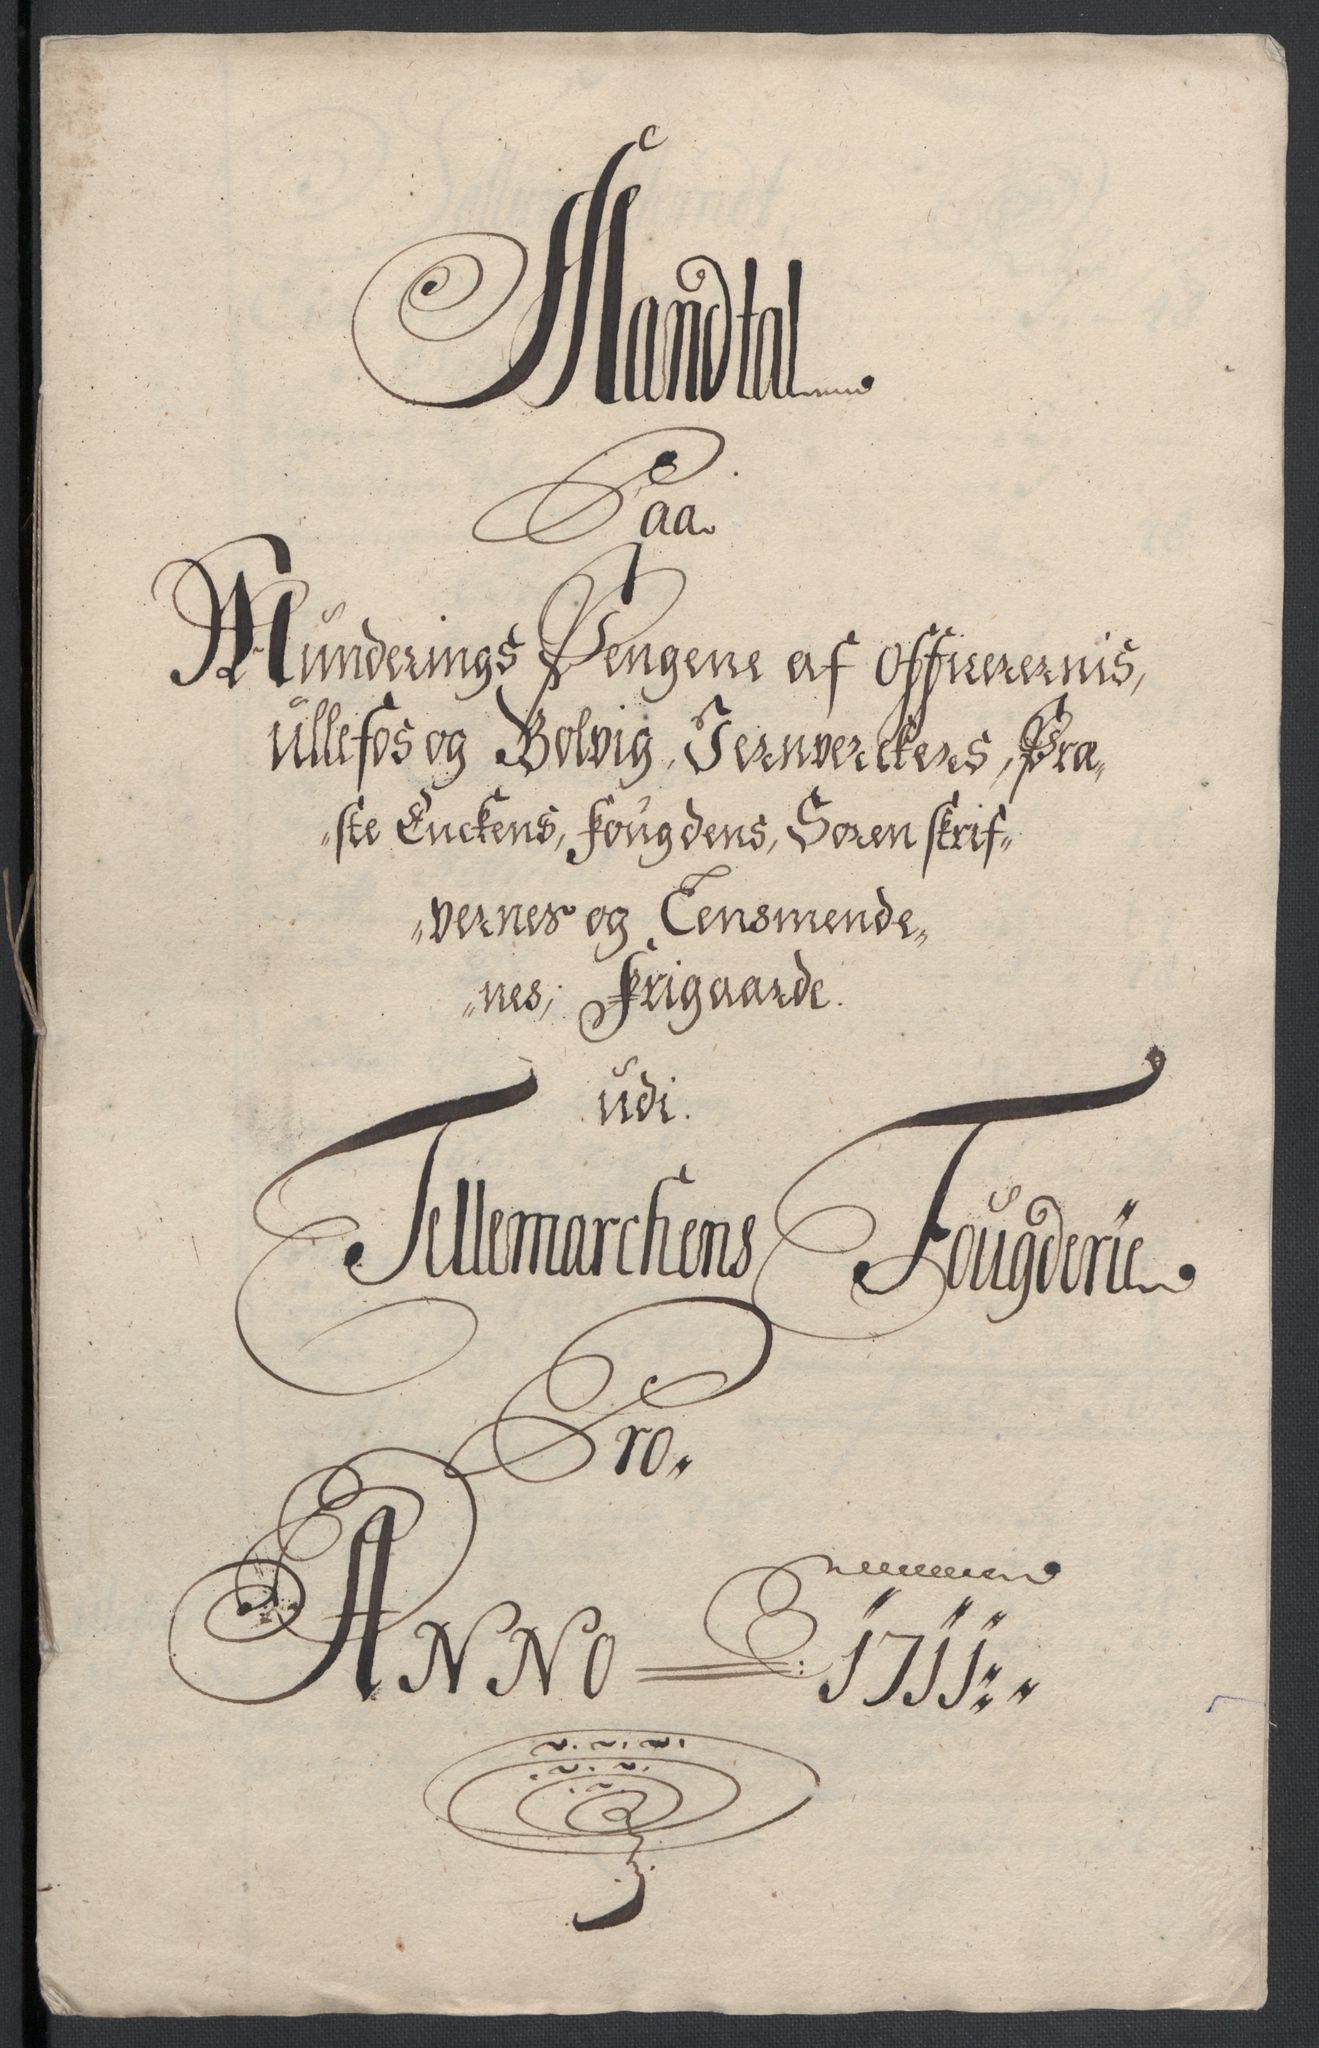 Mandtal
Paa
Munderings Pengene af Officerernis,
Ullefos og Bolvig, Jernverckers, Præ„
„ste Enckens, Fougdens, Soren skrif„
„vernes og Lensmende„
„nes, Frigaarde.
udi.
Tellemarchens Fougderie
Pro„
ANNO = : 1711„